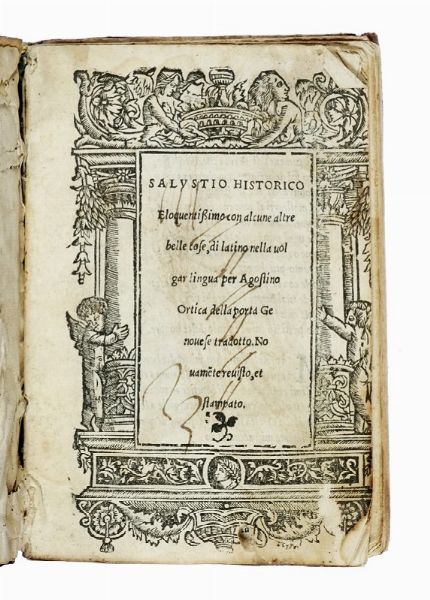 SALVSTIO HISTORICO
Eloquentißimo con alcune altre
belle cose, di latino nella uol
gar lingua per Agostino
Ortica della porta Ge
nouese tradotto. No
uamēte reuisto, et
stampato.